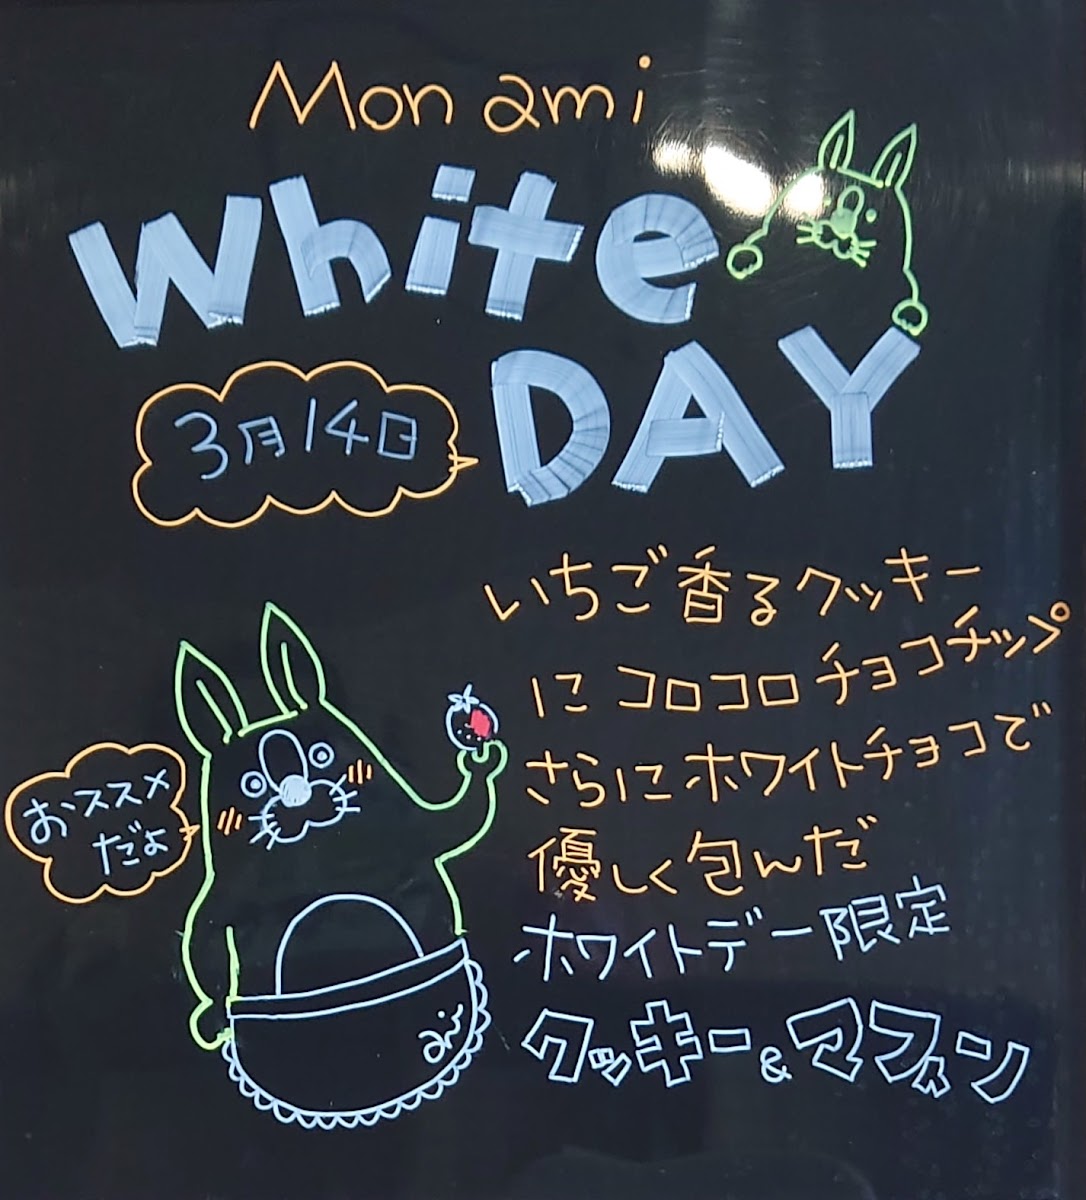 Mon ami
White
DAY
3月14日
いちご香るクッキー
に コロコロ チョコチップ
さらにホワイトチョコで
優しく包んだ
ホワイトデー限定
クッキー&マフィン
おススメ
だよ
ami